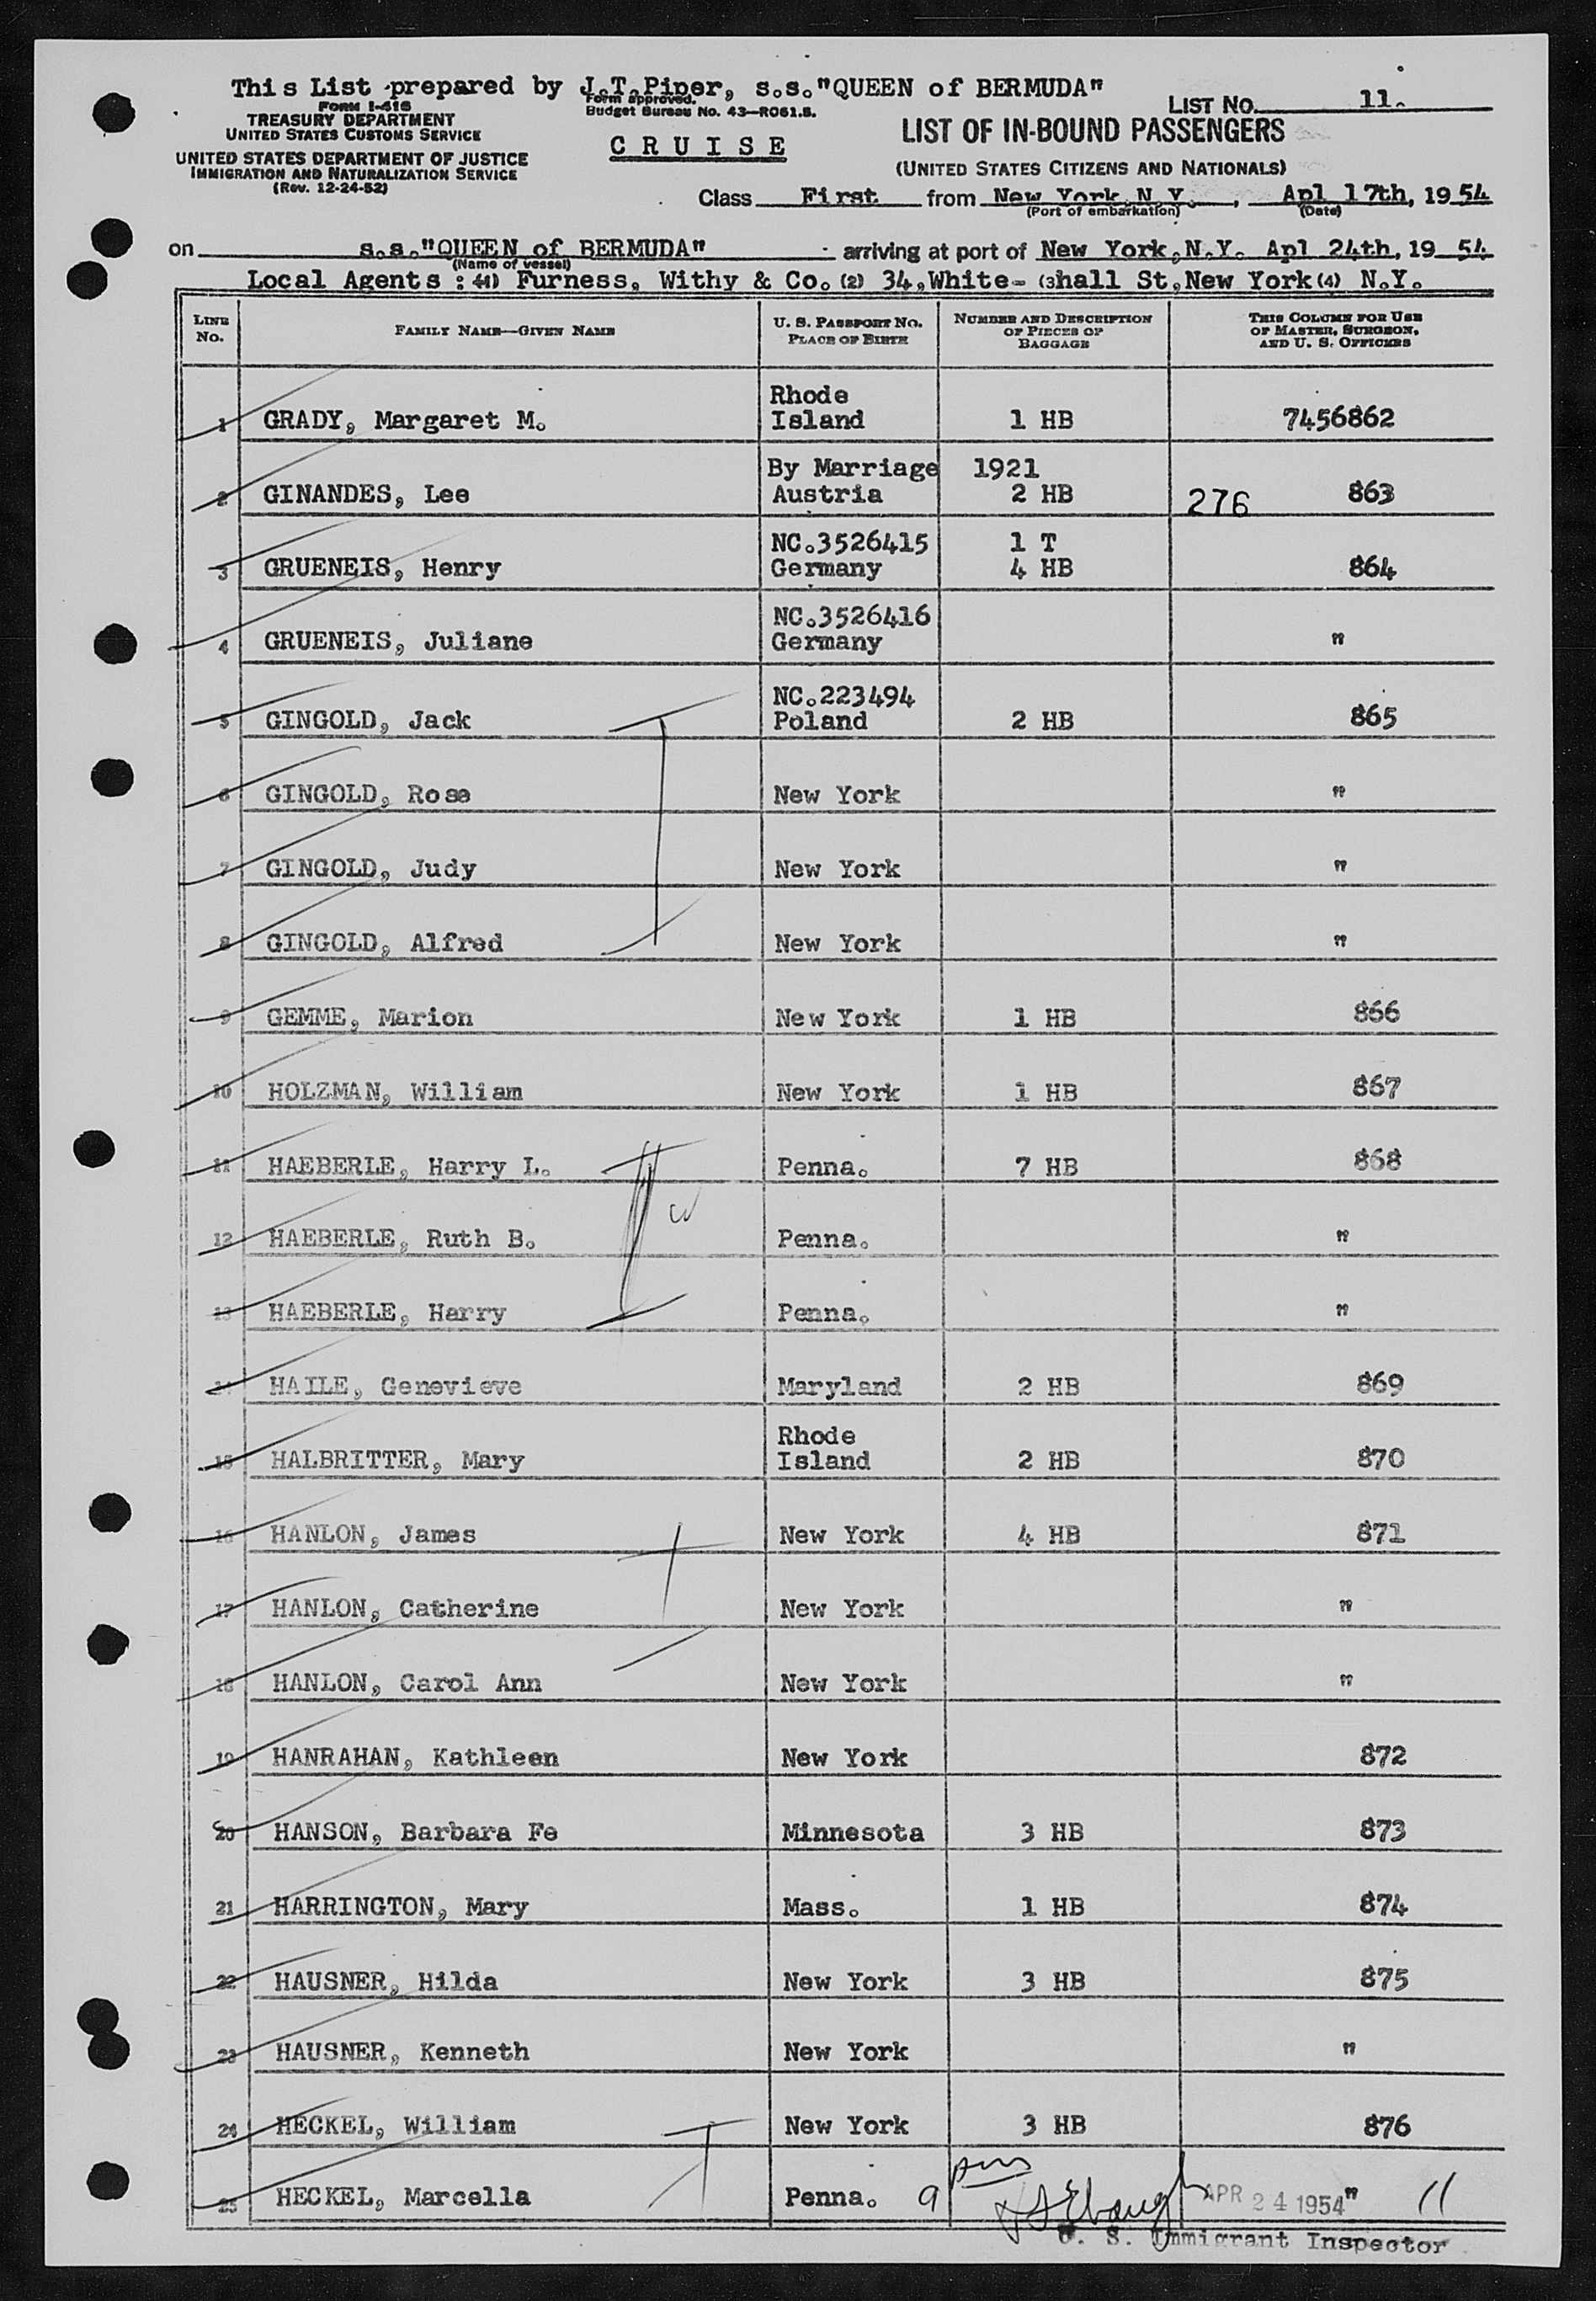 This List prepared by J.T.Piper, s.s."QUEEN of BERMUDA"
FORM I-416
TREASURY DEPARTMENT
UNITED STATES CUSTOMS SERVICE
UNITED STATES DEPARTMENT OF JUSTICE
IMMIGRATION AND NATURALIZATION SERVICE
(Rev. 12-24-52)
Form approved.
Budget Bureau No. 43-R061.5.
CRUISE
LIST NO. 11.
LIST OF IN-BOUND PASSENGERS
(UNITED STATES CITIZENS AND NATIONALS)
Class First from New York, N.Y., Apl 17th, 1954
(Port of embarkation) (Date)
on s.s."QUEEN of BERMUDA" arriving at port of New York, N.Y. Apl 24th, 1954
(Name of vessel)
Local Agents : (1) Furness, Withy & Co. (2) 34, White- (3) hall St, New York (4) N.Y.
LINE No. FAMILY NAME—GIVEN NAME U. S. PASSPORT NO. PLACE OF BIRTH NUMBER AND DESCRIPTION OF PIECES OF BAGGAGE THIS COLUMN FOR USE OF MASTER, SURGEON, AND U. S. OFFICERS
1 GRADY, Margaret M. Rhode Island 1 HB 7456862
2 GINANDES, Lee By Marriage 1921 Austria 2 HB 276 863
3 GRUENEIS, Henry NC.3526415 Germany 1 T 4 HB 864
4 GRUENEIS, Juliane NC.3526416 Germany "
5 GINGOLD, Jack NC.223494 Poland 2 HB 865
6 GINGOLD, Rose New York "
7 GINGOLD, Judy New York "
8 GINGOLD, Alfred New York "
9 GEMME, Marion New York 1 HB 866
10 HOLZMAN, William New York 1 HB 867
11 HAEBERLE, Harry L. Penna. 7 HB 868
12 HAEBERLE, Ruth B. Penna. "
13 HAEBERLE, Harry Penna. "
14 HAILE, Genevieve Maryland 2 HB 869
15 HALBRITTER, Mary Rhode Island 2 HB 870
16 HANLON, James New York 4 HB 871
17 HANLON, Catherine New York "
18 HANLON, Carol Ann New York "
19 HANRAHAN, Kathleen New York 872
20 HANSON, Barbara Fe Minnesota 3 HB 873
21 HARRINGTON, Mary Mass. 1 HB 874
22 HAUSNER, Hilda New York 3 HB 875
23 HAUSNER, Kenneth New York "
24 HECKEL, William New York 3 HB 876
25 HECKEL, Marcella Penna. "
APR 24 1954 11
U. S. Immigrant Inspector